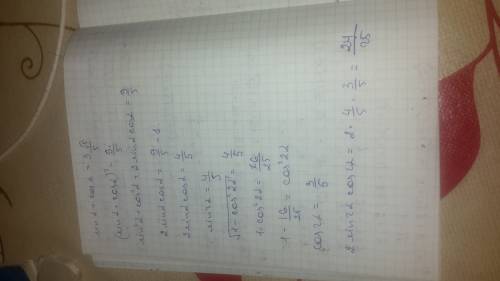 sin α + cos α = 3√5/5
(sin α + cos α)² = 9/5
sin² α + cos² α + 2 sin α cos α = 9/5
2 sin α cos α = 9/5 - 1
2 sin α cos α = 4/5
sin 2α = 4/5
√(1 - cos² 2α) = 4/5
1 - cos² 2α = 16/25
1 - 16/25 = cos² 2α
cos 2α = 3/5
2 sin 2α cos 2α = 2 · 4/5 · 3/5 = 24/25